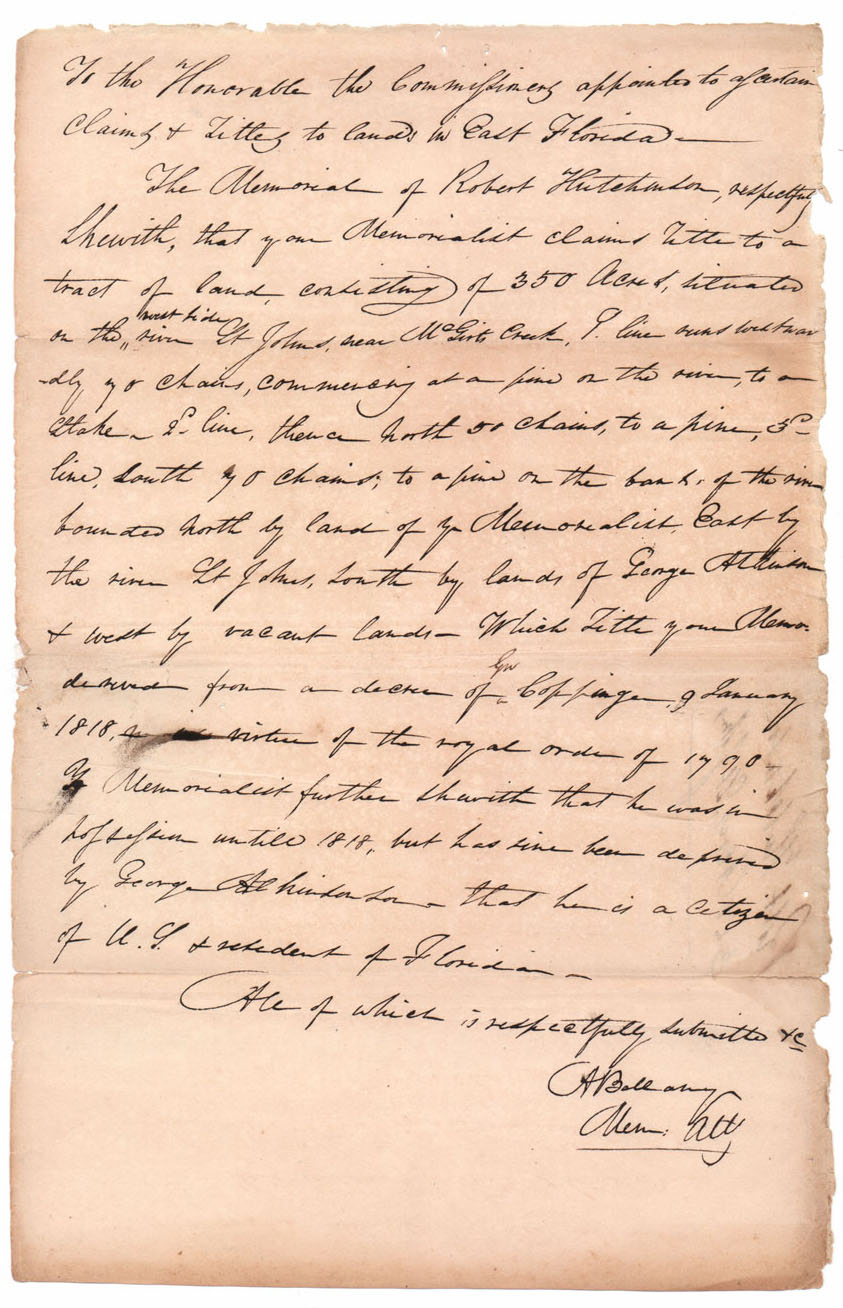 To the Honorable the Commissioners appointed to ascertain
claims & Titles to lands in East Florida—
The Memorial of Robert Hutchinson, respectfully
Shewith, that your Memorialist claims Title to a
tract of land, consisting of 350 Acres, situated
west side
on the river St Johns, near McGirts Creek, 1. line runs westwar
-dly 70 chains, commencing at a pine on the river, to a
Stake — 2d line, thence North 50 chains, to a pine, 3d—
line, South 70 chains, to a pine on the bank of the river
bounded North by land of yr Memorialist, East by
the river St Johns, South by lands of George Atkinson
& west by vacant lands— Which Title your Memo-
Gov
derived from a decree of Coppinger, 9 January
1818, virtue of the royal order of 1790—
Yr Memorialist further Shewith that he was in
possession untill 1818, but has sine been deprived
by George Atkinson — that he is a citizen
of U.S. & resident of Florida —
All of which is respectfully submitted &c
A Bellamy
Mem: Atty